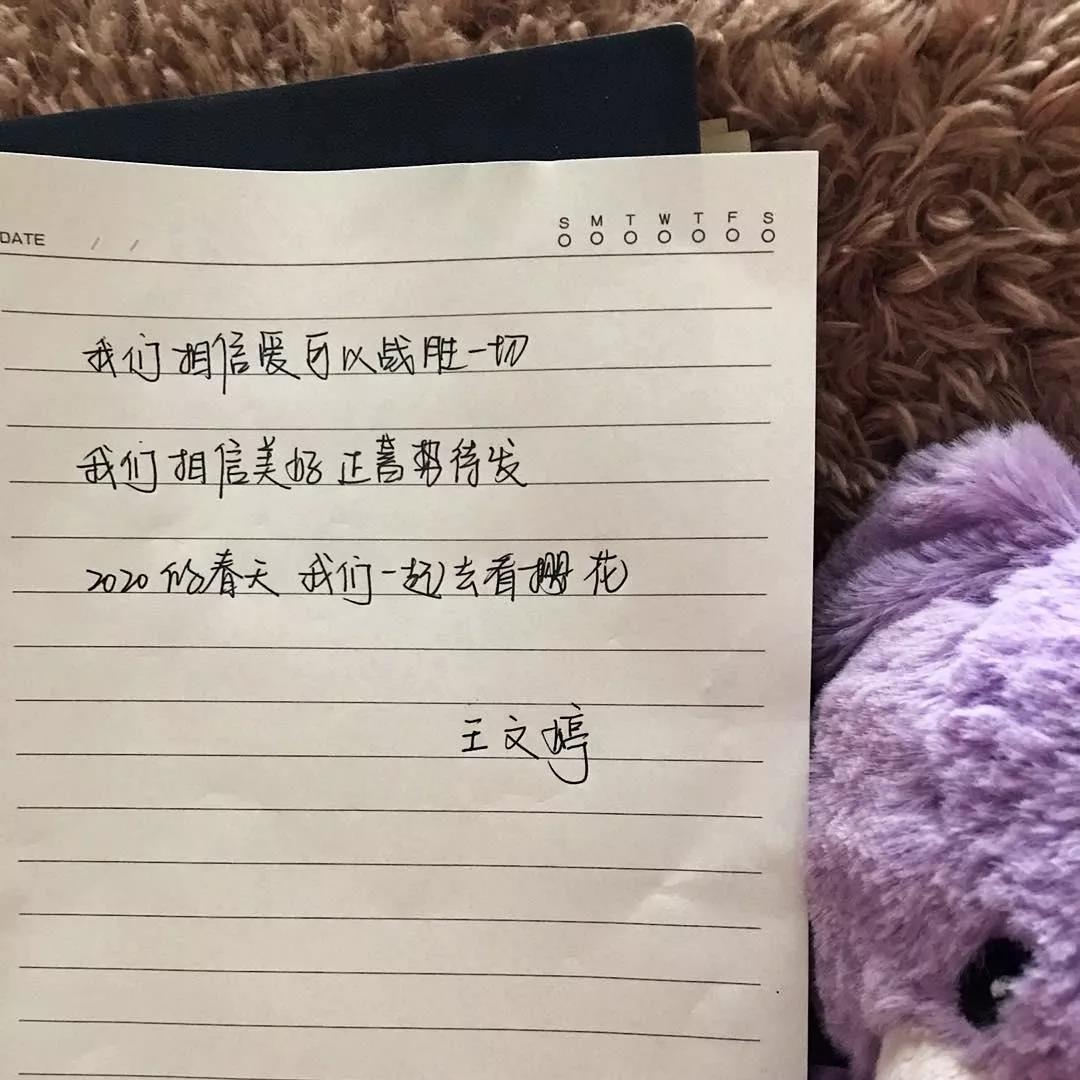 DATE / /
S M T W T F S
我们相信爱可以战胜一切
我们相信美好正蓄势待发
2020的春天 我们一起去看樱花
王文婷